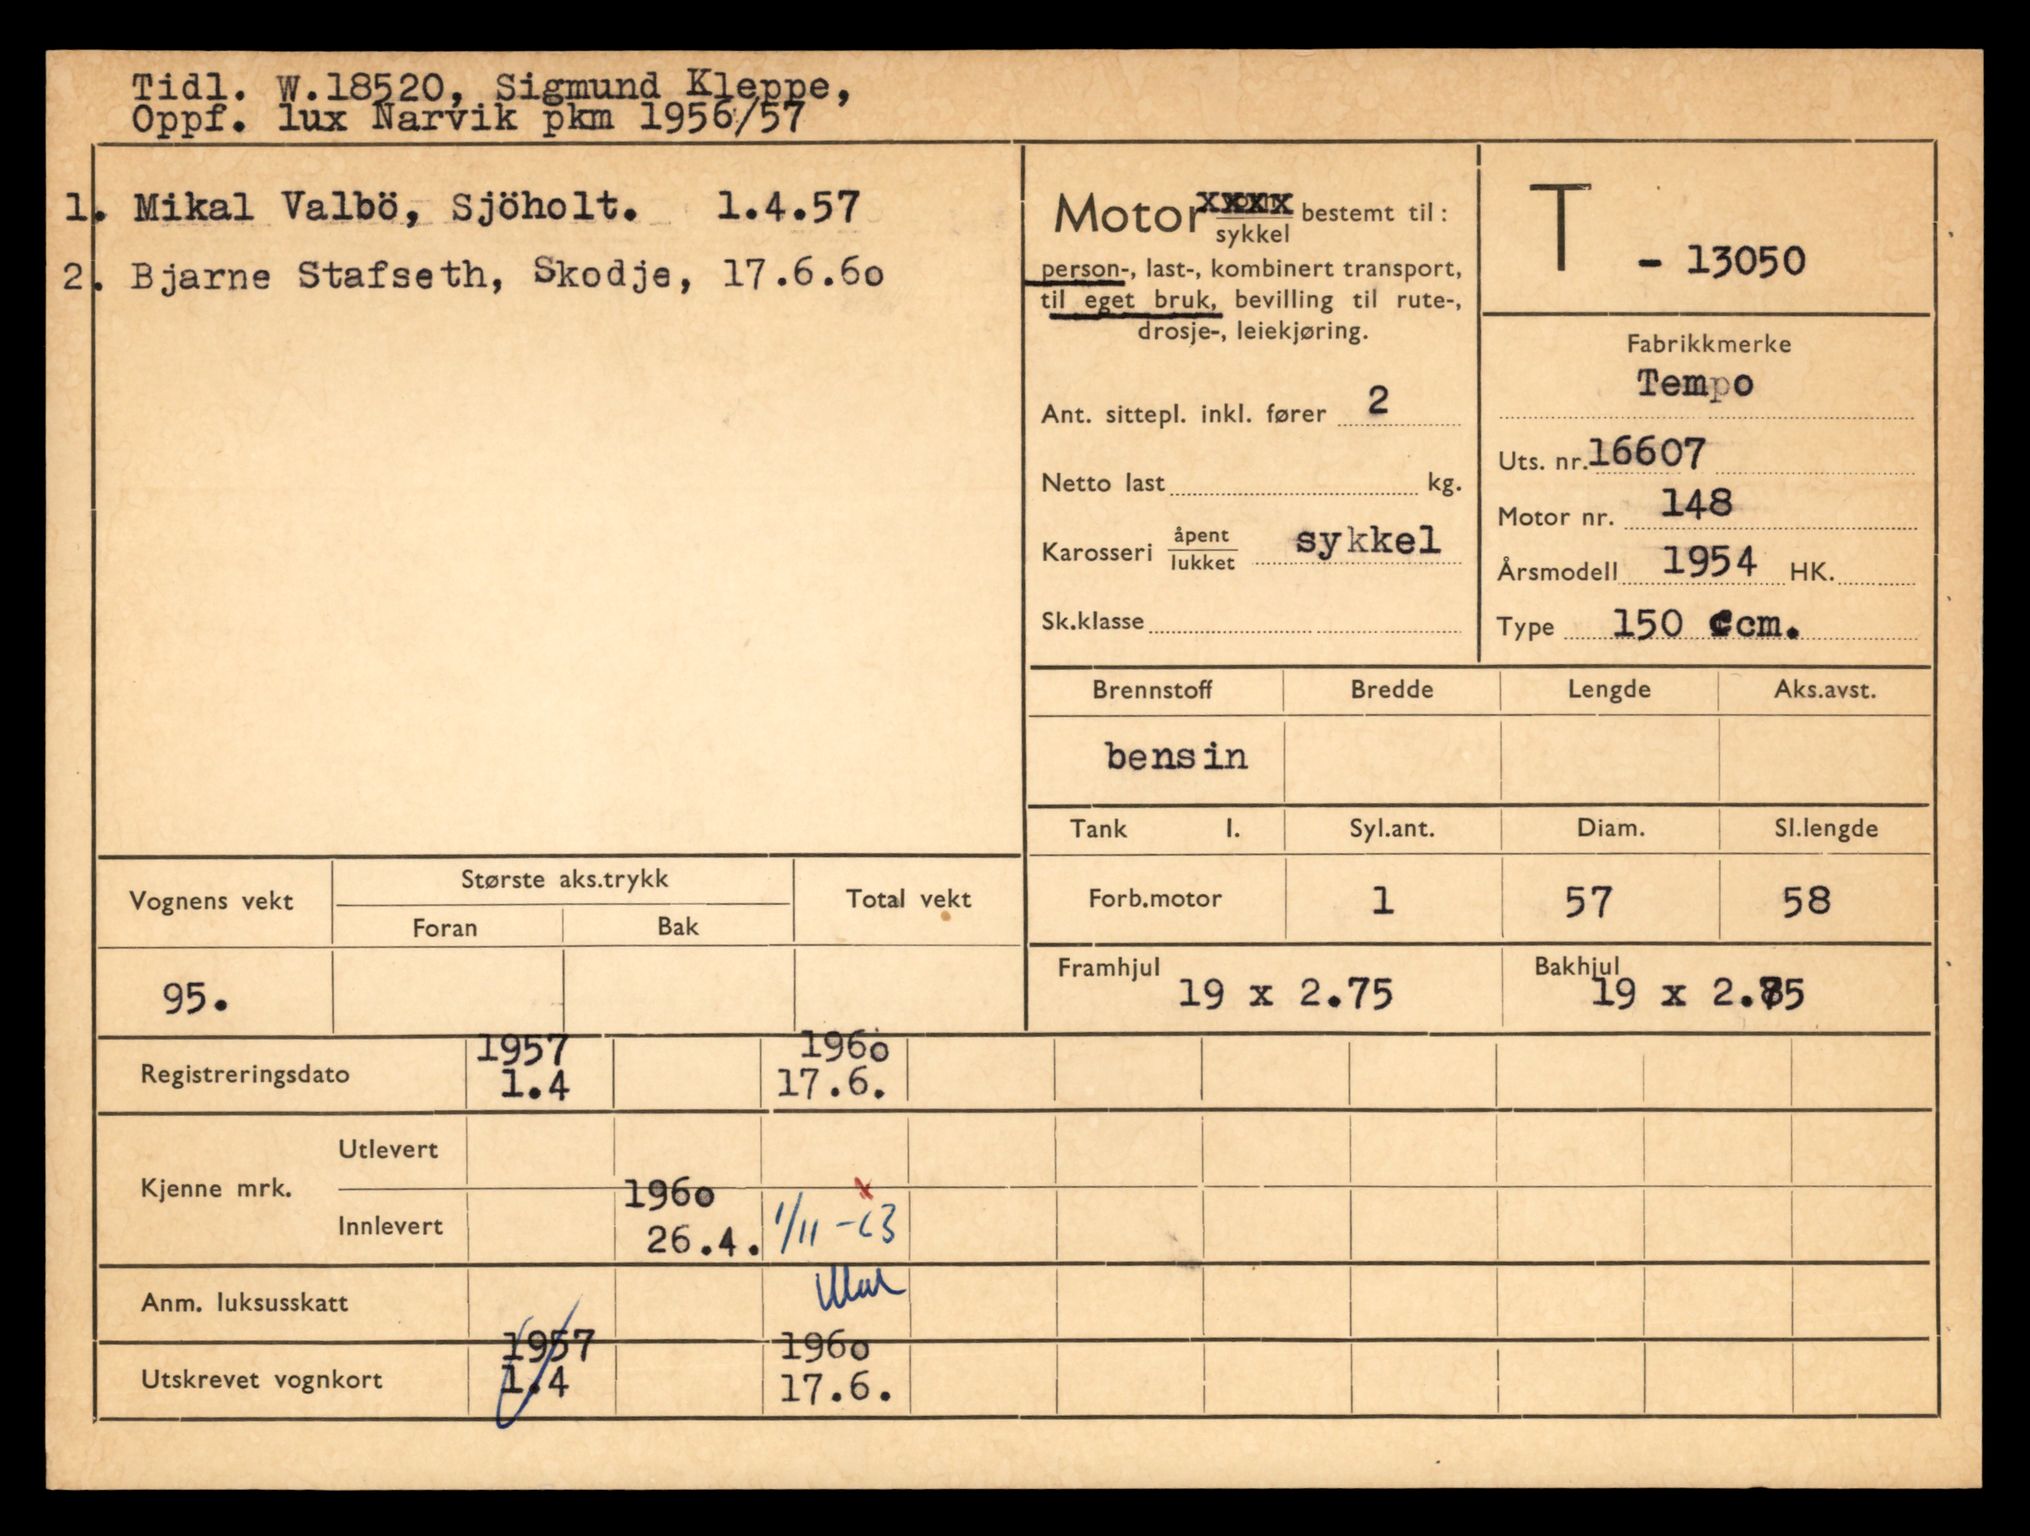 Tidl. W.18520, Sigmund Kleppe,
Oppf. lux Narvik pkm 1956/57
1. Mikal Valbö, Sjöholt. 1.4.57
2. Bjarne Stafseth, Skodje, 17.6.60
Motor xxxx sykkel bestemt til:
person-, last-, kombinert transport,
til eget bruk, bevilling til rute-,
drosje-, leiekjøring.
Ant. sittepl. inkl. fører 2
Netto last kg.
Karosseri åpent lukket sykkel
Sk.klasse
T - 13050
Fabrikkmerke
Tempo
Uts. nr. 16607
Motor nr. 148
Årsmodell 1954 HK.
Type 150 ccm.
Brennstoff Bredde Lengde Aks.avst.
bensin
Tank l. Syl.ant. Diam. Sl.lengde
Forb.motor 1 57 58
Framhjul 19 x 2.75 Bakhjul 19 x 2.75
Vognens vekt Største aks.trykk Total vekt
Foran Bak
95.
Registreringsdato 1957 1960
1.4 17.6.
Kjenne mrk. Utlevert
Innlevert 1960 x
26.4. 1/11 -63
Anm. luksusskatt
Utskrevet vognkort 1957 1960
1.4 17.6.